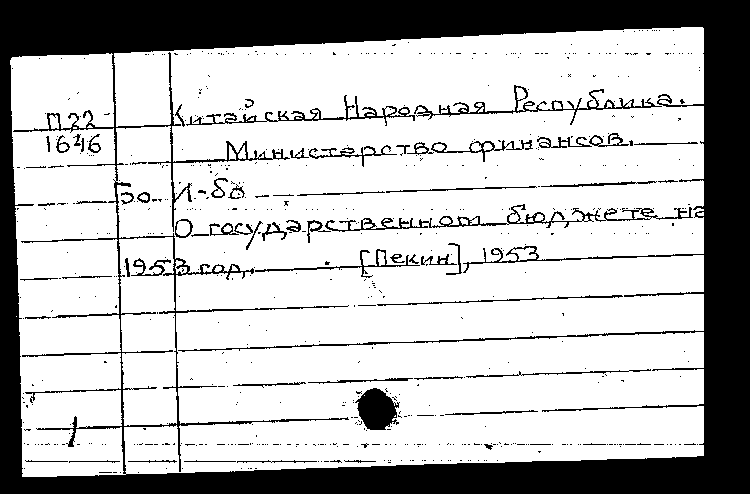 П22 Китайская Народная Республика.
1646 Министерство финансов.
Бо И-бо
О государственном бюджете на
1953 год. [Пекин], 1953